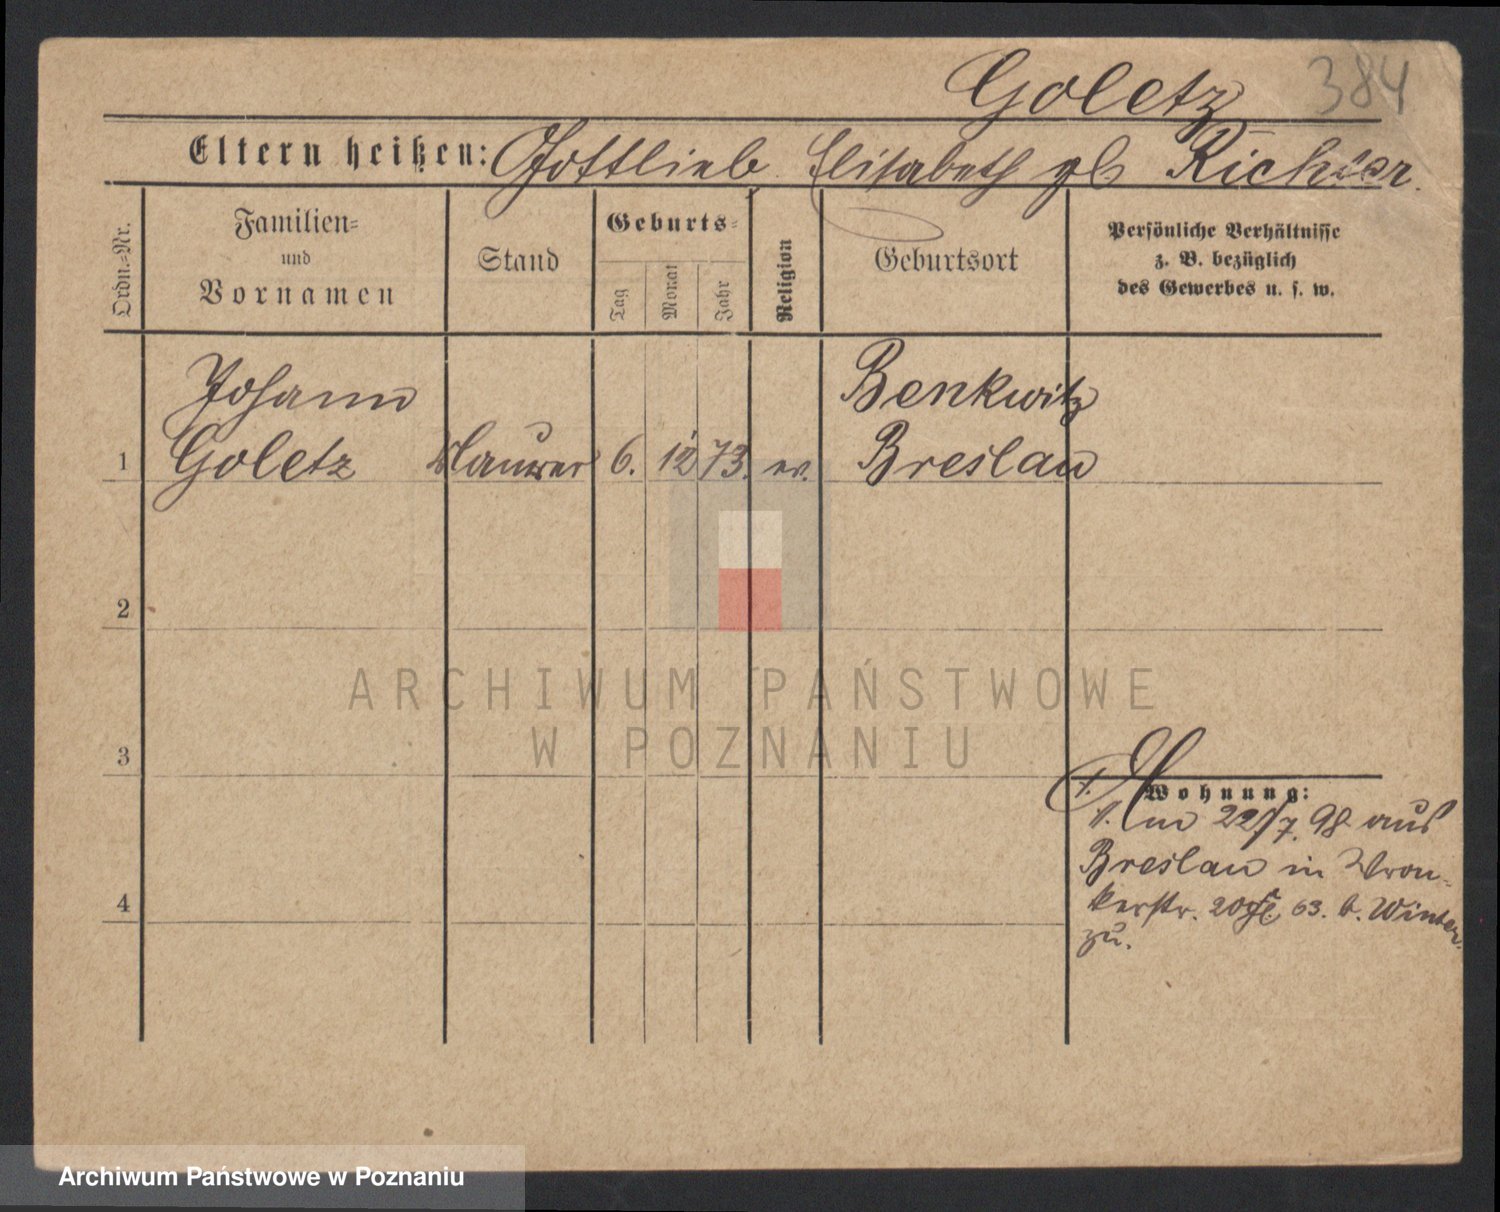 Goletz 384
Eltern heißen: Gottlieb Elisabeth gb Richter.
Ordn.-Nr.
Familien-
und
Vornamen
Stand
Geburts-
Tag
Monat
Jahr
Religion
Geburtsort
Persönliche Verhältnisse
z. B. bezüglich
des Gewerbes u. s. w.
Johann Benkwitz
1 Goletz Maurer 6. 12 73. ev. Breslau
2
3
4
Wohnung:
22/7. 98 aus
Breslau in Wron-
kerstr. 20 63. b. Winter
zu.
ARCHIWUM PAŃSTWOWE
W POZNANIU
Archiwum Państwowe w Poznaniu